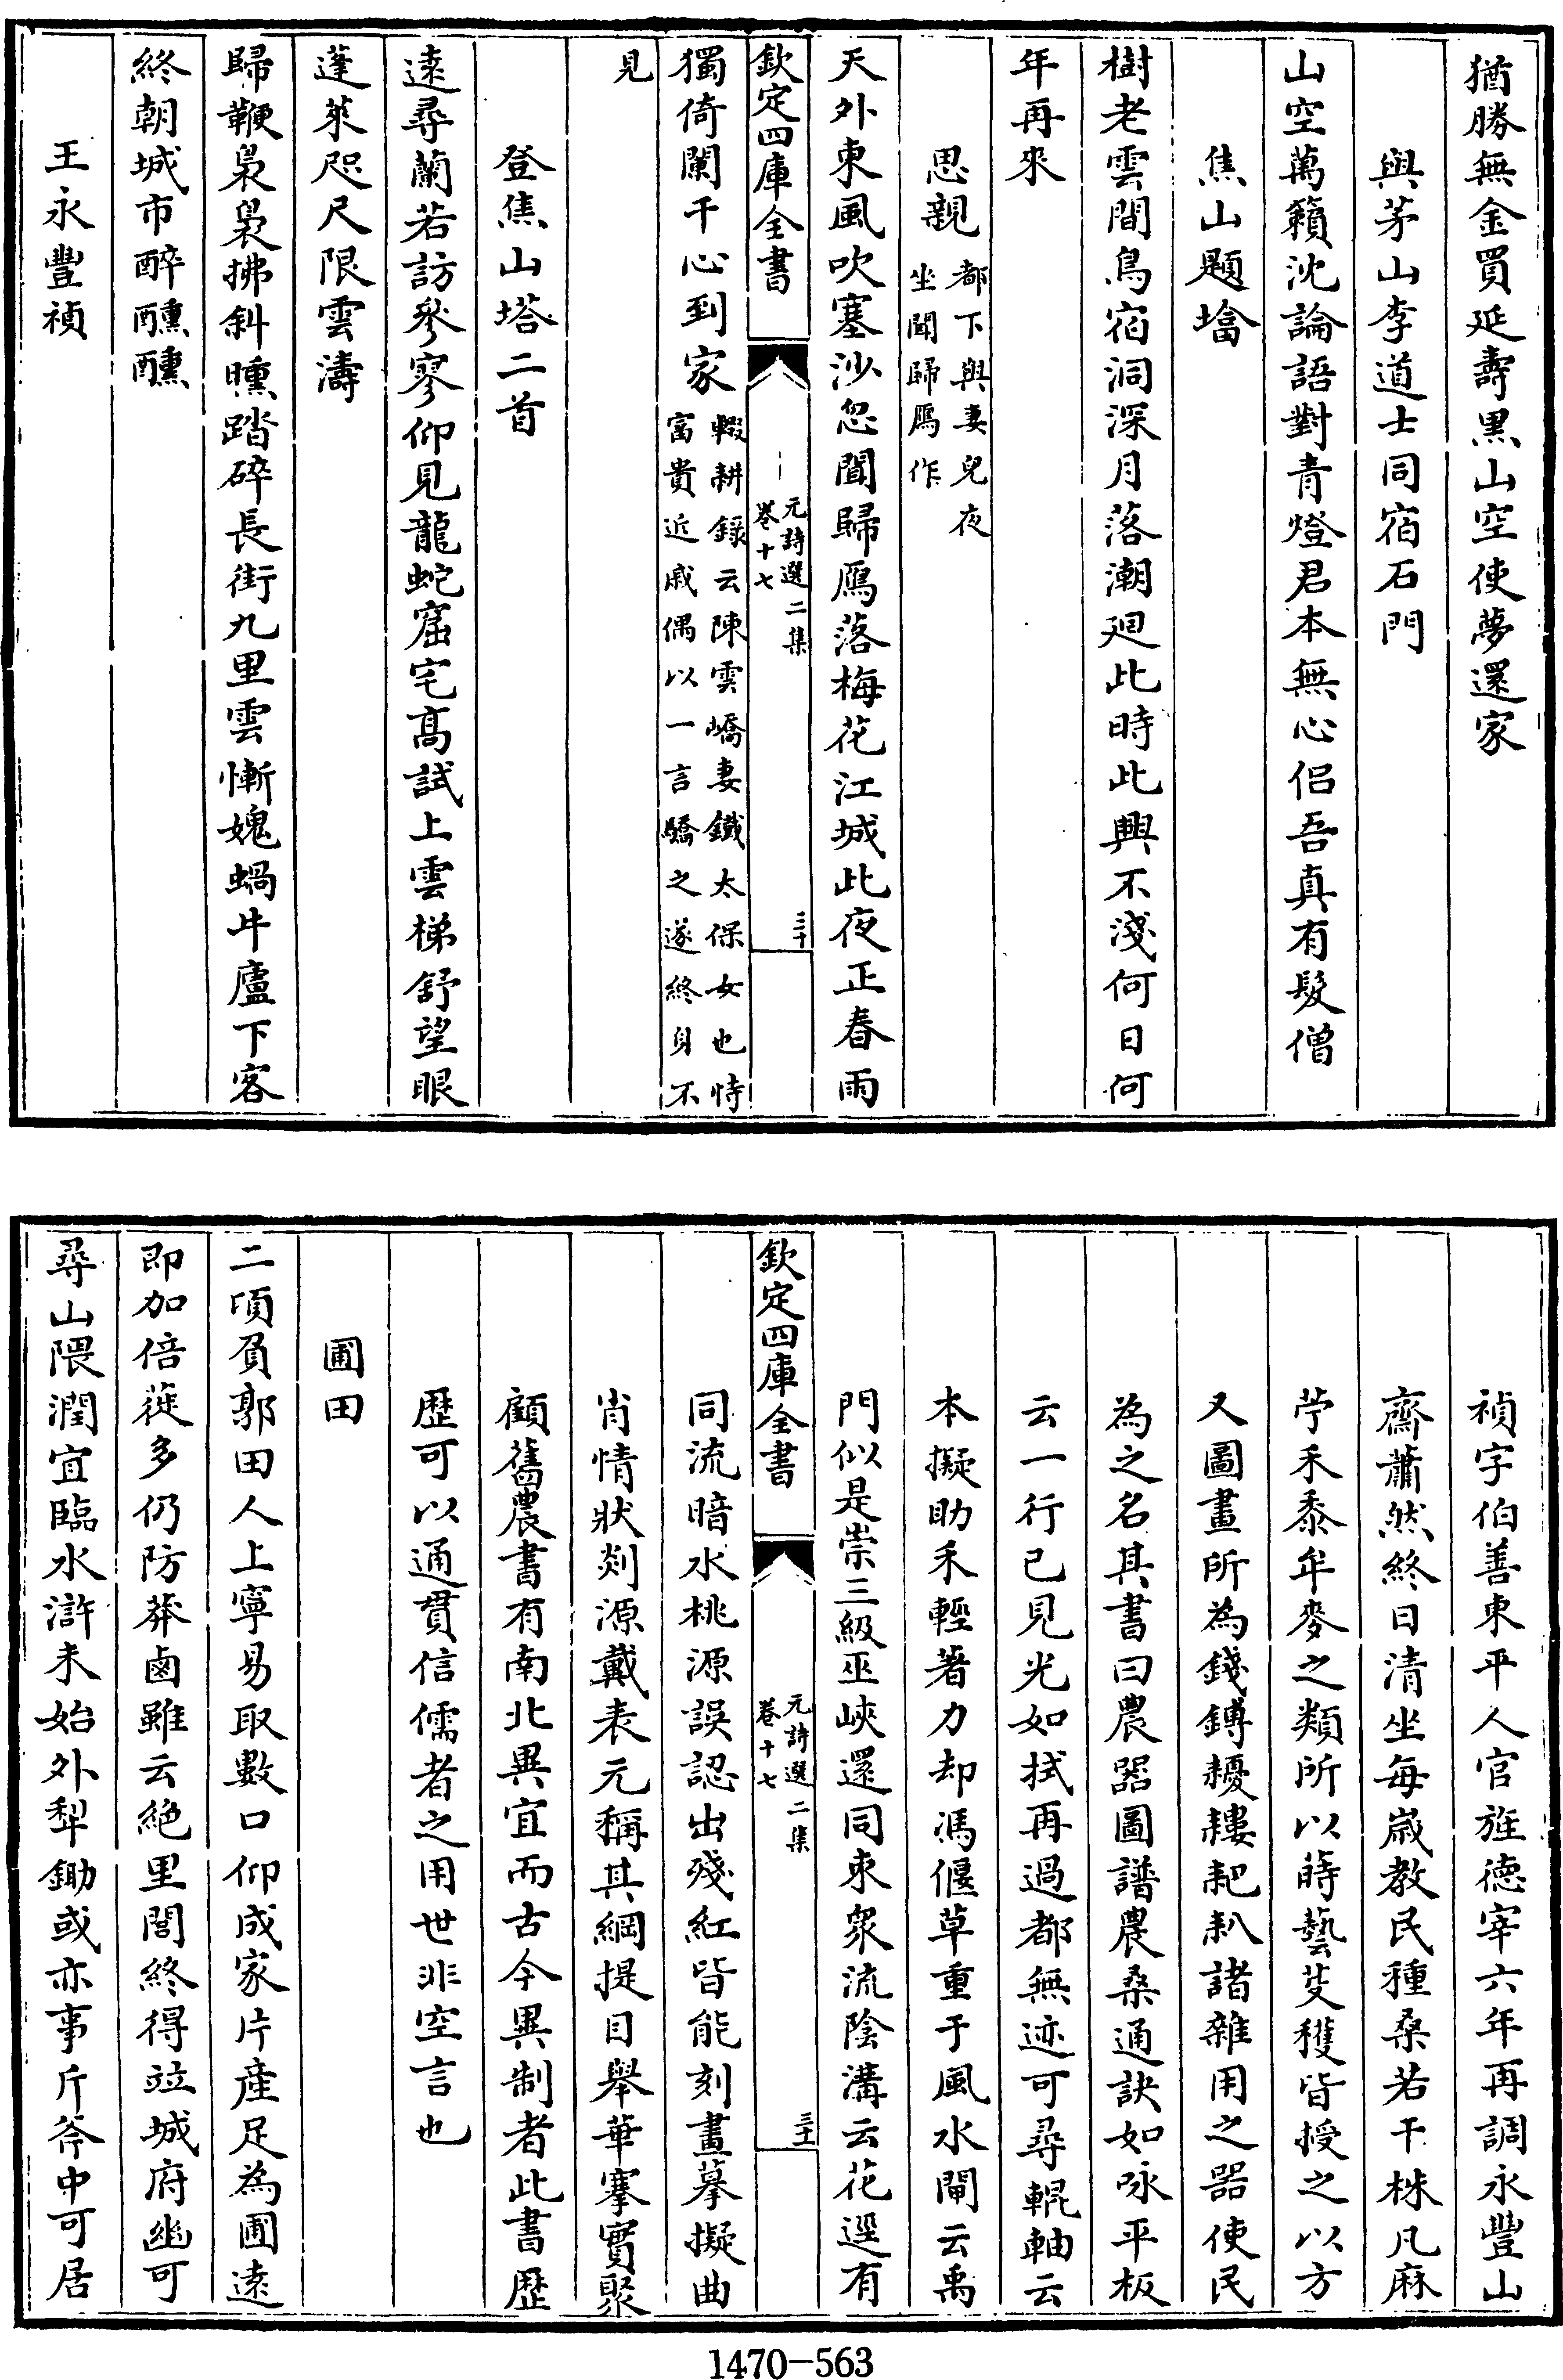 猶勝無金買延壽黒山空使夢還家
與茅山李道士同宿石門
山空萬籟沈論語對青燈君本無心侣吾真有髪僧
焦山題壋
樹老雲間鳥宿洞深月落潮廻此時此興不淺何日何
年再來
思親都下與妻兒夜
坐聞歸鴈作
天外東風吹塞沙忽聞歸鴈落梅花江城此夜正春雨
欽定四庫全書
元詩選二集
卷十七
三十
獨倚闌干心到家輟耕録云陳雲嶠妻鐵太保女也恃
富貴近戚偶以一言驕之遂終身不
見
登焦山塔二首
遠尋蘭若訪參寥仰見龍蛇窟宅髙試上雲梯舒望眼
蓬萊咫尺限雲濤
歸鞭裊裊拂斜曛踏碎長街九里雲慚媿蝸牛廬下客
終朝城市醉醺醺
王永豐禎
禎字伯善東平人官旌德宰六年再調永豐山
齋蕭然終日清坐每嵗教民種桑若干株凡麻
苧禾黍牟麥之類所以蒔藝芟穫皆授之以方
又圖畫所為錢鎛耰耬耙耖諸雜用之器使民
為之名其書曰農器圖譜農桑通訣如咏平板
云一行已見光如拭再過都無迹可尋輥軸云
本擬助禾輕著力却馮偃草重于風水閘云禹
門似是崇三級巫峽還同束衆流陰溝云花選有
欽定四庫全書
元詩選二集
卷十七
三十一
同流暗水桃源誤認出殘紅皆能刻畫摹擬曲
肖情狀剡源戴表元稱其綱提目舉華搴實聚
顧舊農書有南北異宜而古今異制者此書歴
歴可以通貫信儒者之用世非空言也
圃田
二頃負郭田人上寧易取數口仰成家片產足為圃遠
即加倍蓰多仍防莽鹵雖云絶里閭終得竝城府幽可
尋山隈潤宜臨水滸未始外犁鋤或亦事斤斧中可居
1470-563